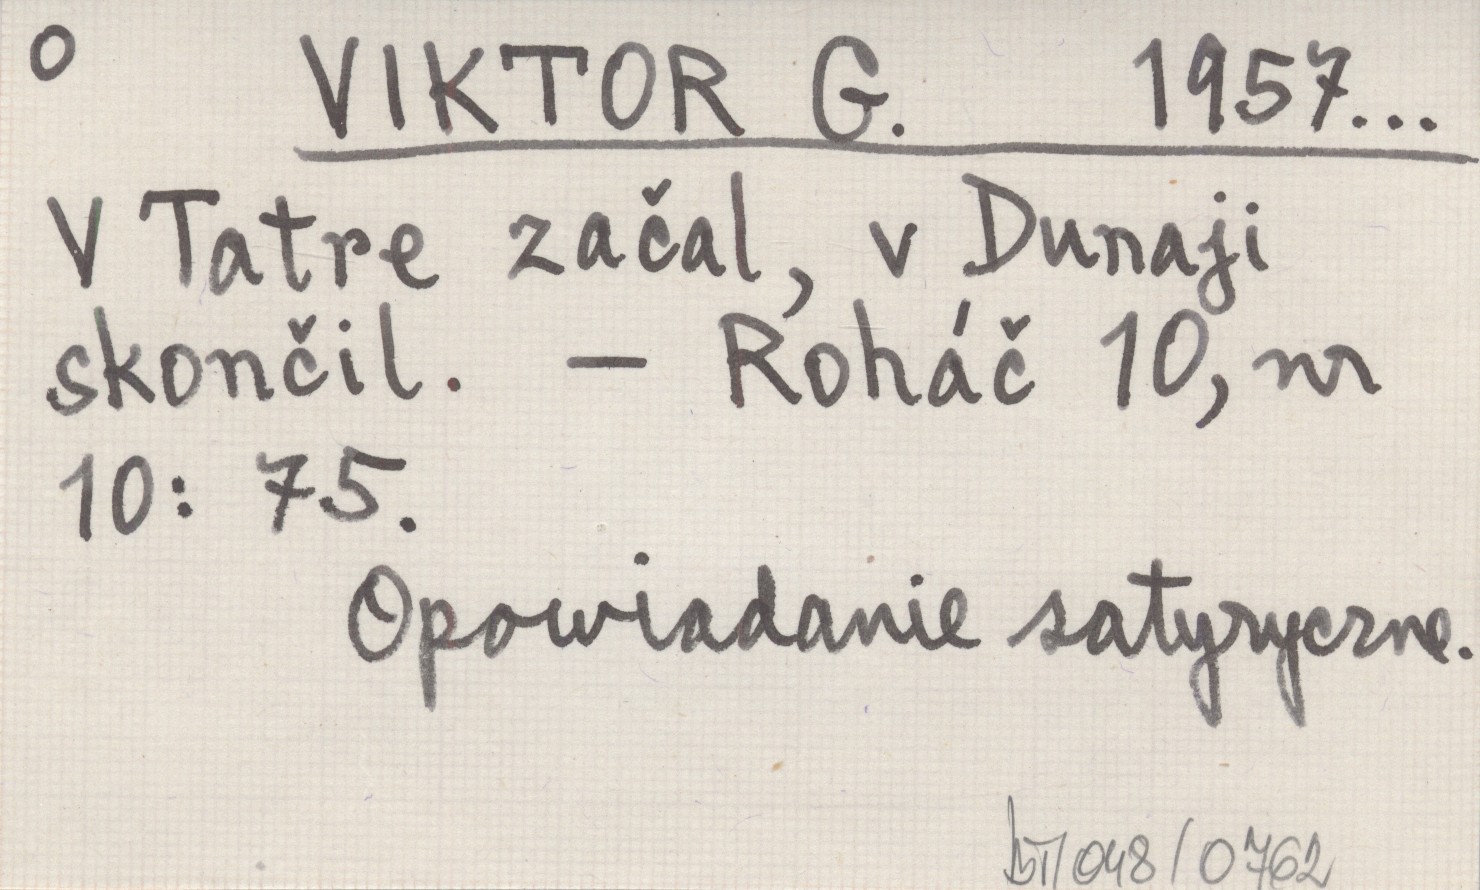 o VIKTOR G. 1957...
V Tatre začal, v Dunaji
skončil. – Roháč 10, nr
10: 75.
Opowiadanie satyryczne.
bT/048/0762